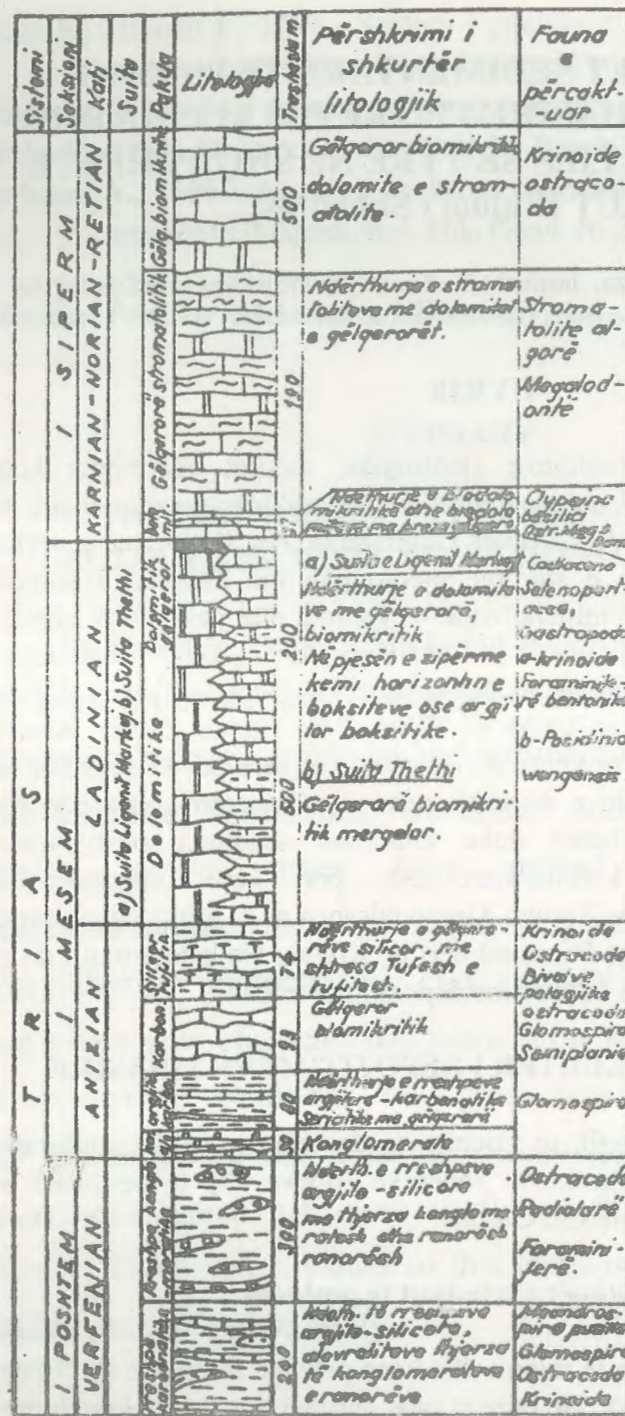 Sistemi
Seksioni
Kati
Suita
Pakoja
Litologjia
Trashësia m.
Përshkrimi i
shkurtër
litologjik
Fauna
e
përcakt-
-uar
TRIAS
I SIPERM
KARNIAN-NORIAN-RETIAN
Gëlq. biomikritik
500
Gëlqeror biomikritik
dolomite e strom-
atolite.
Krinoide
ostraco-
da
Gëlqerorë stromatolitik
190
Ndërthurje e stroma
toliteve me dolomitet
e gëlqerorët.
Stroma-
tolite al-
gorë
Megalod-
ontë
Ndërthurje e
mikritike dhe
Clypeina
basilici
I MESEM
LADINIAN
a) Suita Ligenit Markaj, b) Suita Thethi
Dolomitik
gëlqeror
200
a) Suita e Ligenit Markaj
Ndërthurje e dolomite
ve me gëlqerorë,
biomikritik
Në pjesën e sipërme
kemi horizontin e
boksiteve ose argj
ilor boksitike.
Selenoport-
acea,
gastropoda
a-krinoide
Foraminife-
rë bentonike
Dolomitike
600
b) Suita Thethi
Gëlqerorë biomikri
tik mergelor.
b-Posidinia
wengensis
ANIZIAN
Silicor
tufitik
74
Ndërthurje e gëlqero-
rëve silicor, me
shtresa Tufesh e
tufitesh.
Krinoide
Ostracode
Bivalve
pelagjike
Karbon.
Gëlqeror
biomikritik
ostracode
Glomospira
Ndërthurje e rreshpeve
argjilore-karbonatike
me gëlqerorë
Glomospira
Konglomerate
I POSHTEM
VERFENIAN
300
Ndërth. e rreshpeve
argjilo-silicore
me thjerza konglome
ratesh dhe ranorësh
ranorësh
Ostracode
Radiolarë
Foramini-
ferë.
240
Ndërth. të rreshpeve
argjilo-silicore,
alevroliteve thjerza
të konglomerateve
e ranorëve
Meandros-
pira pusilla
Glomospira
Ostracode
Krinoide